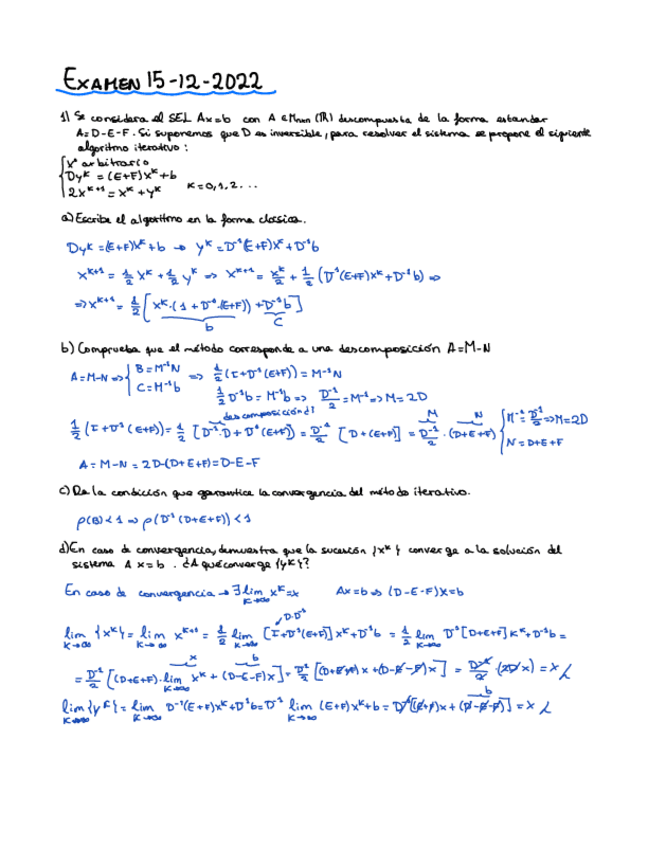 EXAMEN 15-12-2022
1) Se considera el SEL Ax=b con A ∈ Mnxn (ℝ) descompuesta de la forma estandar
A=D-E-F. Si suponemos que D es inversible, para resolver el sistema se propone el siguiente
algoritmo iterativo:
{ x⁰ arbitrario
Dyᵏ = (E+F)xᵏ+b K=0,1,2...
2xᵏ⁺¹ = xᵏ+yᵏ
a) Escribe el algoritmo en la forma clásica.
Dyᵏ = (E+F)xᵏ+b → yᵏ = D⁻¹(E+F)xᵏ+D⁻¹b
xᵏ⁺¹ = 1/2 xᵏ + 1/2 yᵏ => xᵏ⁺¹ = xᵏ/2 + 1/2 (D⁻¹(E+F)xᵏ+D⁻¹b) =>
=> xᵏ⁺¹ = 1/2 [xᵏ·(1+D⁻¹·(E+F)) + D⁻¹b]
b C
b) Comprueba que el método corresponde a una descomposición A=M-N
A=M-N => { B=M⁻¹N => 1/2 (I+D⁻¹(E+F)) = M⁻¹N
C=M⁻¹b 1/2 D⁻¹b = M⁻¹b => D⁻¹/2 = M⁻¹ => M=2D
descomposición d I M N
1/2 (I+D⁻¹(E+F)) = 1/2 [D⁻¹·D+D⁻¹(E+F)] = D⁻¹/2 [D+(E+F)] = D⁻¹/2 · (D+E+F) { M⁻¹ = D⁻¹/2 => M=2D
N=D+E+F
A=M-N = 2D-(D+E+F)=D-E-F
c) Da la condición que garantice la convergencia del método iterativo.
ρ(B)<1 => ρ(D⁻¹(D+E+F))<1
d) En caso de convergencia, demuestra que la sucesión {xᵏ} converge a la solución del
sistema Ax=b. ¿A qué converge {yᵏ}?
En caso de convergencia → ∃ lim xᵏ=x K→∞ Ax=b => (D-E-F)x=b
D·D⁻¹
lim {xᵏ} = lim xᵏ⁺¹ = 1/2 lim [I+D⁻¹(E+F)]xᵏ+D⁻¹b = 1/2 lim D⁻¹[D+E+F]xᵏ+D⁻¹b =
K→∞ K→∞ K→∞ K→∞
x b
= D⁻¹/2 [(D+E+F)·lim xᵏ + (D-E-F)x] = D⁻¹/2 [(D+E+F)x+(D-E-F)x] = D⁻¹/2 · (2Dx) = x
K→∞
b
lim {yᵏ} = lim D⁻¹(E+F)xᵏ+D⁻¹b = D⁻¹ lim (E+F)xᵏ+b = D⁻¹[(E+F)x+(D-E-F)] = x
K→∞ K→∞ K→∞